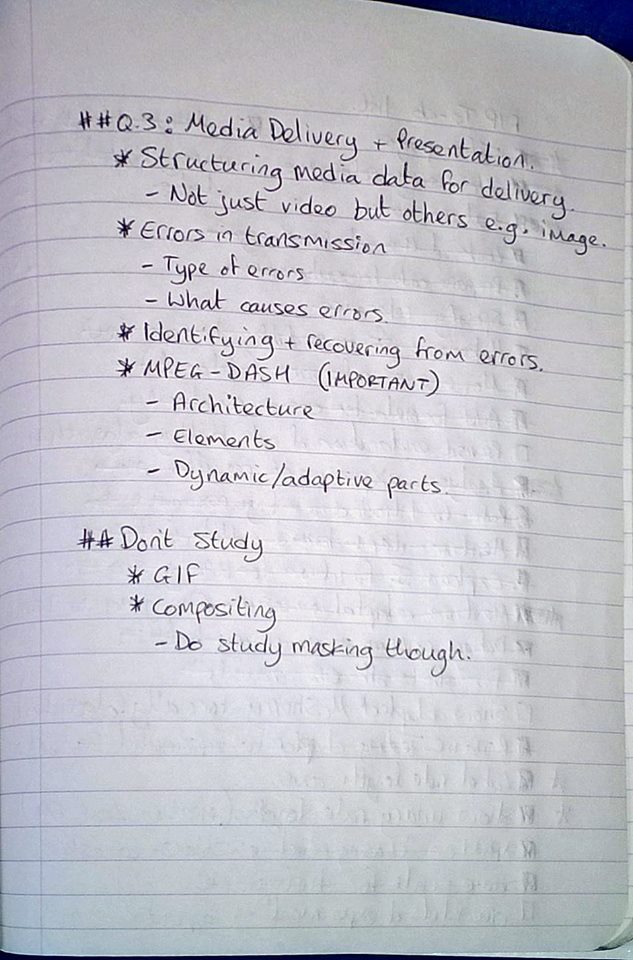 ##Q.3: Media Delivery + Presentation.
* Structuring media data for delivery.
- Not just video but others e.g. image.
* Errors in transmission
- Type of errors
- What causes errors
* Identifying + recovering from errors.
* MPEG-DASH (IMPORTANT)
- Architecture
- Elements
- Dynamic/adaptive parts.
## Don't Study
* GIF
* Compositing
- Do study masking though.